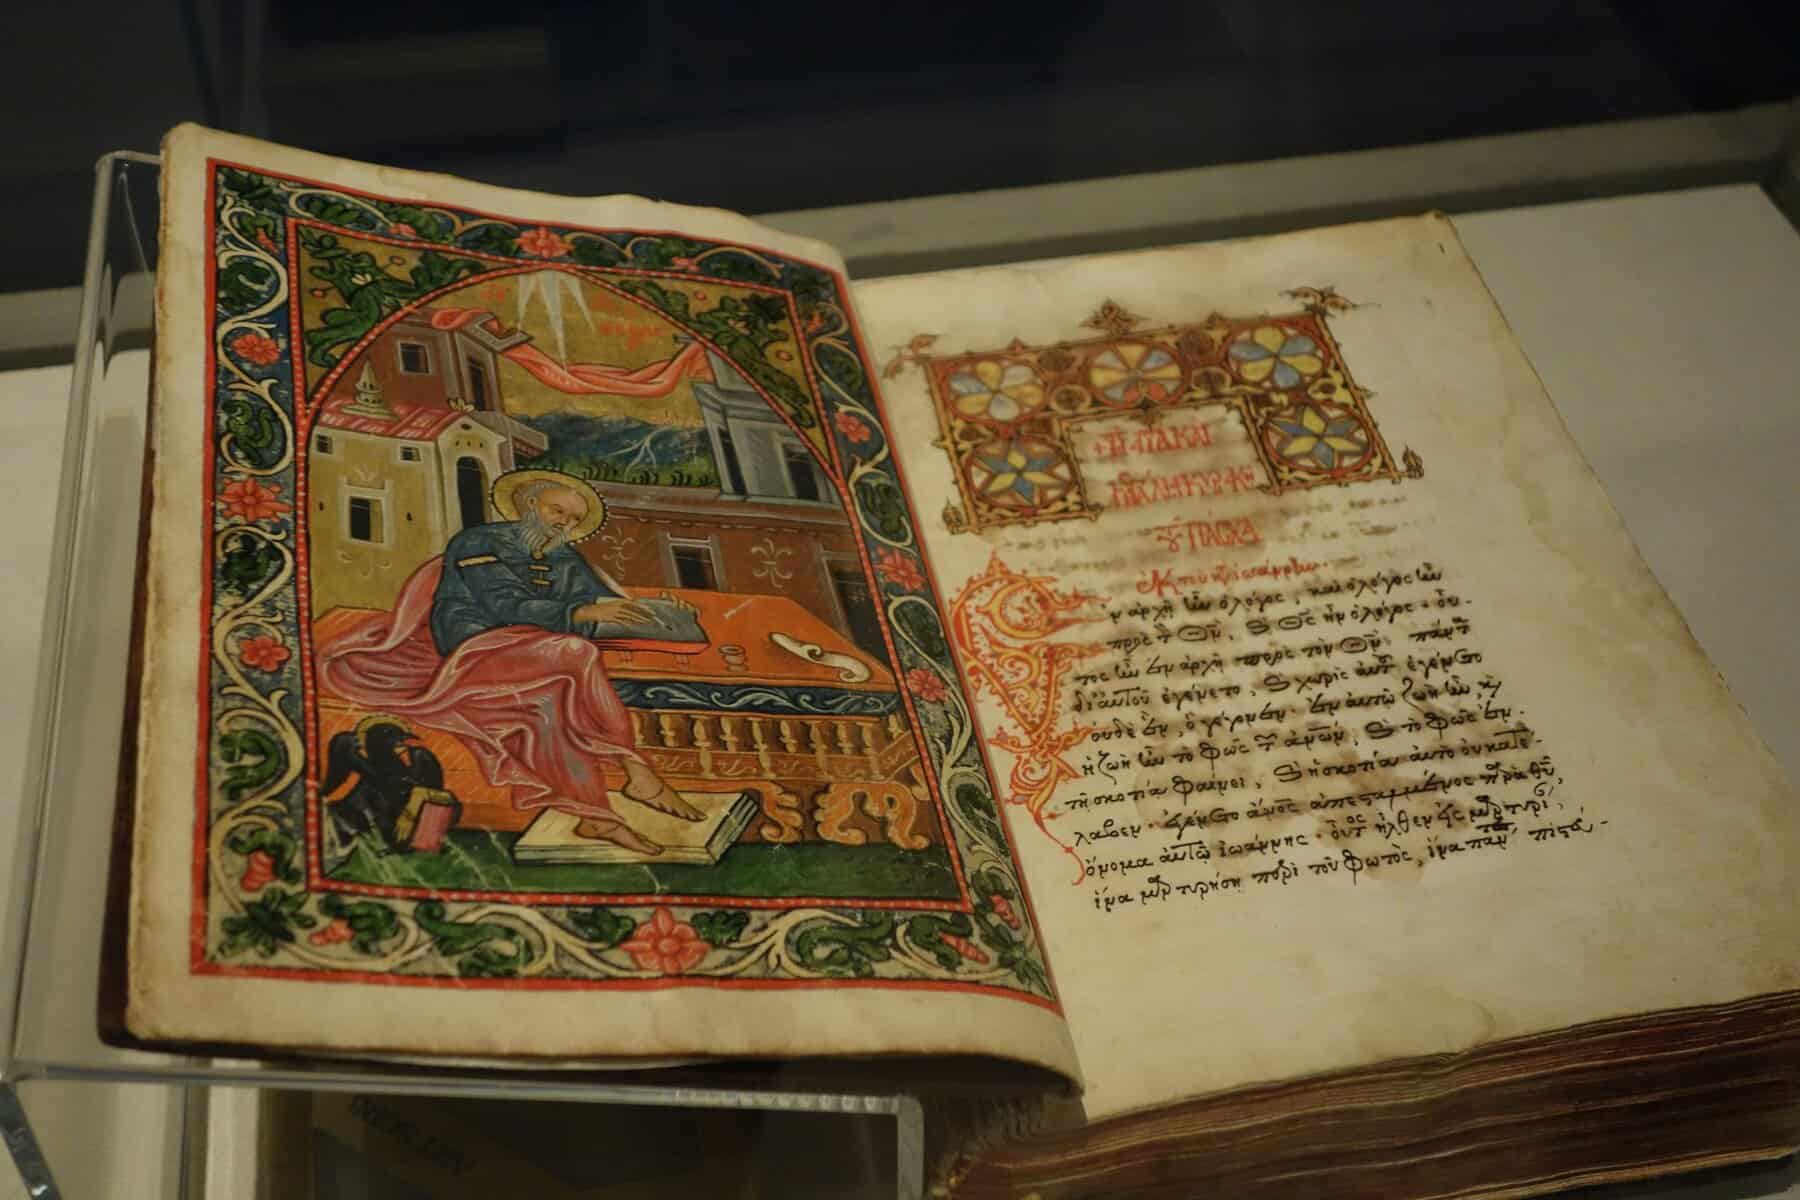 ΠΑΣΧΑ
Ἐκ τοῦ κατὰ ἰωάννην.
ἐν ἀρχῇ ἦν ὁ λόγος, καὶ ὁ λόγος ἦν
πρὸς τὸν Θν, καὶ Θς ἦν ὁ λόγος· οὗ-
τος ἦν ἐν ἀρχῇ πρὸς τὸν Θν· πάντα
δι' αὐτοῦ ἐγένετο, καὶ χωρὶς αὐτοῦ ἐγένετο
οὐδὲ ἕν, ὃ γέγονεν· ἐν αὐτῷ ζωὴ ἦν, καὶ
ἡ ζωὴ ἦν τὸ φῶς τῶν ἀνων, καὶ τὸ φῶς ἐν
τῇ σκοτίᾳ φαίνει, καὶ ἡ σκοτία αὐτὸ οὐ κατέ-
λαβεν· ἐγένετο ἄνος ἀπεσταλμένος παρὰ Θυ,
ὄνομα αὐτῷ ἰωάννης· οὗτος ἦλθεν εἰς μαρτυρί,
ἵνα μαρτυρήσῃ περὶ τοῦ φωτὸς, ἵνα πάντες πιστεύ-